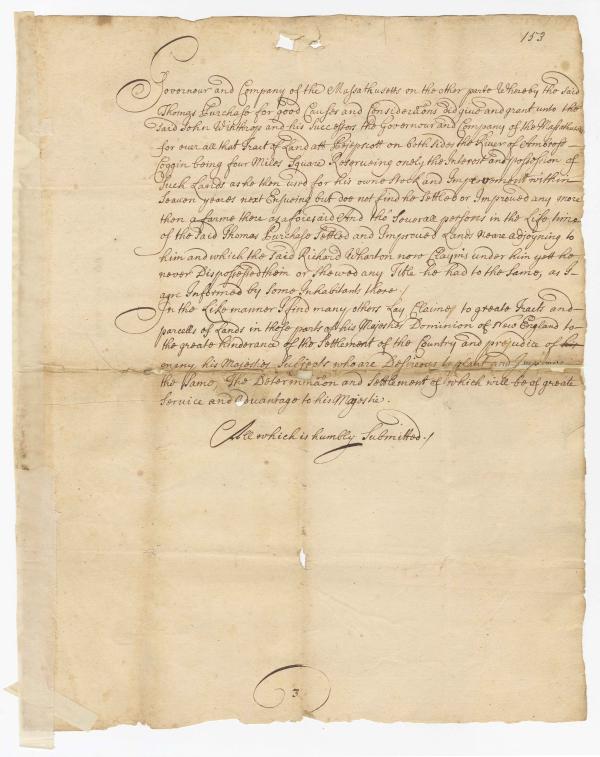 153
Governour and Company of the Massathusetts on the other parte Whereby the said
Thomas Purchase for good Causes and Considerations did give and grant unto the
said John Winthrop and his Successors the Governour and Company of the Massathusetts
for ever all that Tract of Land att Pejepscott on both sides the River of
Coggin being four Miles Square Reserveing onely the Interest and possession of
Such Lands as he then used for his owne Stock and Improvement within
Seaven yeares next Ensueing but doe not find he setled or Improved any more
then a farme there as aforesaid And the Severall persons in the Life time
of the said Thomas Purchase Settled and Improved Lands neare adjoyning to
him and which the said Richard Wharton now Clayms under him yett he
never Dispossessed them or shewed any Title he had to the same, as I
am Informed by some Inhabitants there /
In the Like manner I find many others Lay Claime to greate Tracts and
parcells of Lands in those parts of his Majesties Dominion of New England to
the great hinderance of the Settlement of the Country and prejudice of
many, his Majesties Subjects who are Desireous to plant and Improve
the same, The Determinacon and Settlement of which will be of greate
Service and advantage to his Majestie.
All which is humbly Submitted /
3